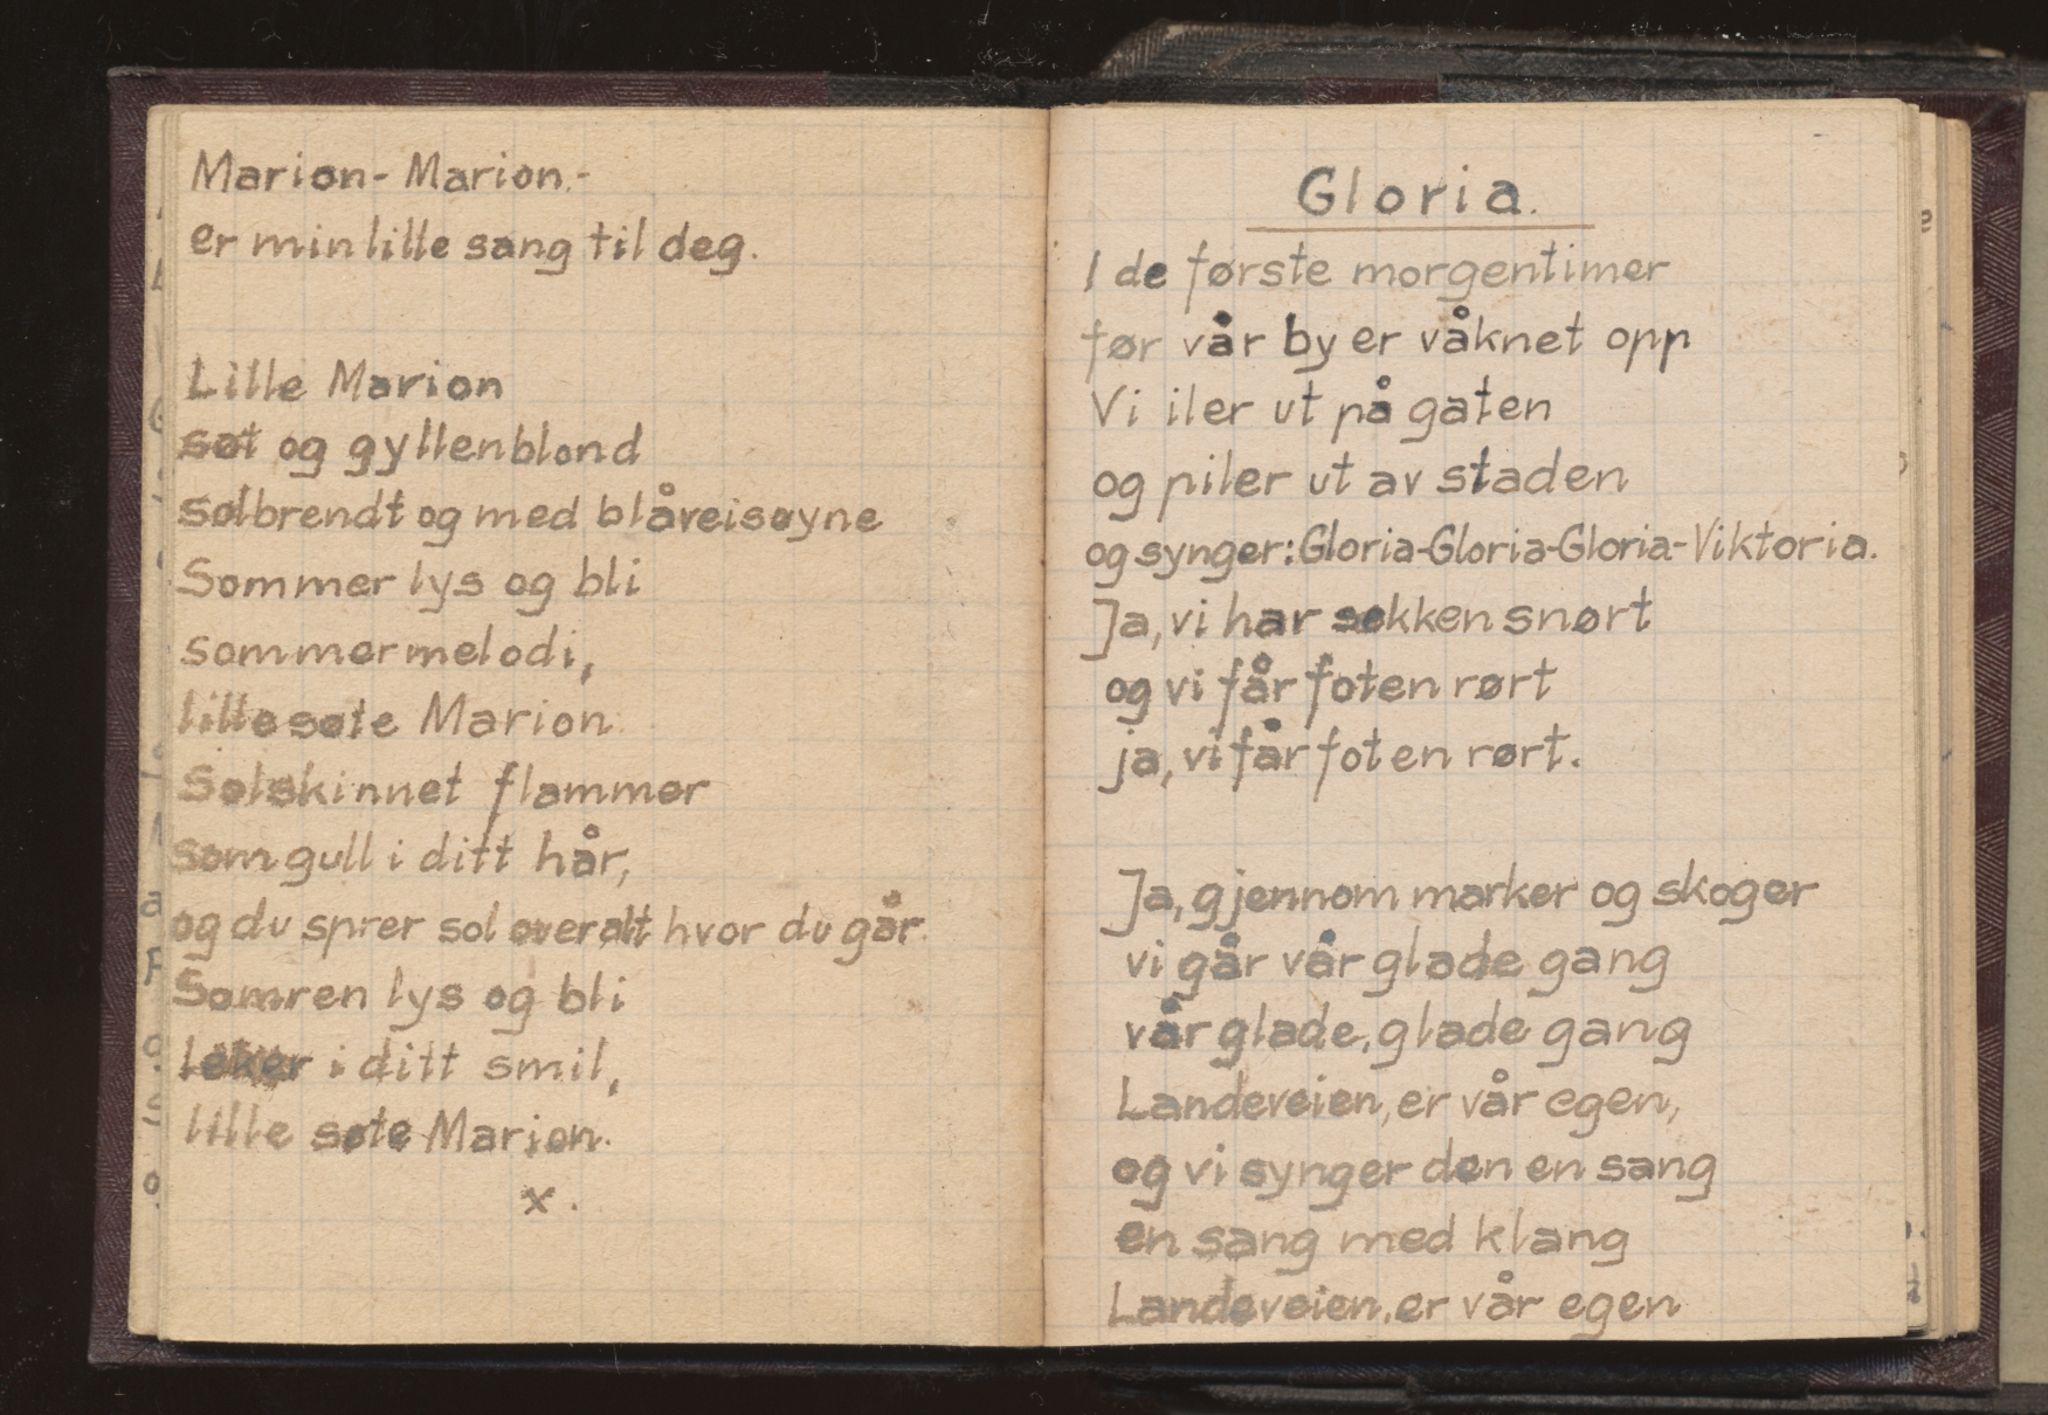 Marion- Marion.-
er min lille sang til deg.
Lille Marion
søt og gyllenblond
solbrendt og med blåveisøyne
Sommer lys og bli
sommermelodi,
lille søte Marion
Solskinnet flammer
som gull i ditt hår,
og du sprer sol overalt hvor du går.
Somren lys og bli
leker i ditt smil,
lille søte Marion.
x.
Gloria.
I de første morgentimer
før vår by er våknet opp
Vi iler ut på gaten
og piler ut av staden
og synger: Gloria-Gloria-Gloria-Viktoria.
Ja, vi har sekken snørt
og vi får foten rørt
ja, vi får foten rørt.
Ja, gjennom marker og skoger
vi går vår glade gang
vår glade, glade gang
Landeveien, er vår egen,
og vi synger den en sang
en sang med klang
Landeveien, er vår egen